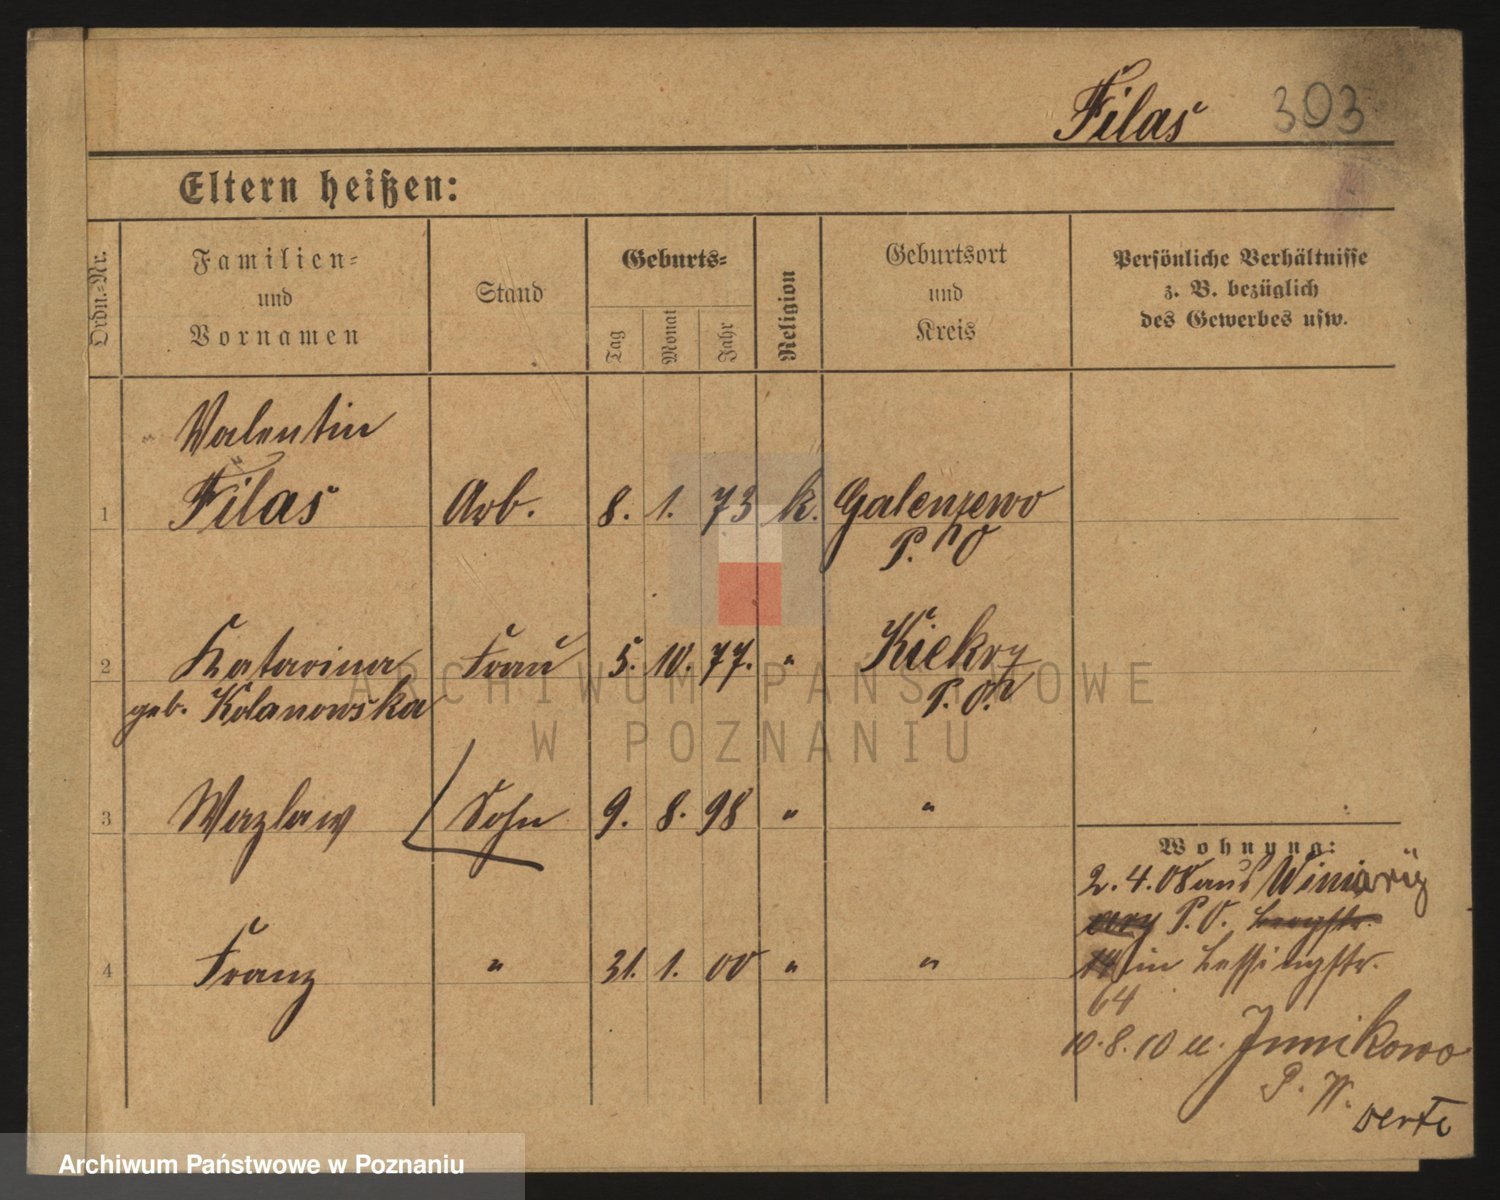 Filas 303
Eltern heißen:
Ordn.-Nr.
Familien-
und
Vornamen
Stand
Geburts-
Tag
Monat
Jahr
Religion
Geburtsort
und
Kreis
Persönliche Verhältnisse
z. B. bezüglich
des Gewerbes usw.
Valentin
1 Filas Arb. 8. 1. 73 k. Galenzewo
P. O
2 Katarina Frau 5. 10. 77. " Kiekrz
geb. Kolanowska P. O.
3 Wazlaw Sohn 9. 8. 98 " "
4 Franz " 31. 1. 00 " "
Wohnung:
2. 4. 08 aus Winiary
P. O. Bergstr.
14 in Lessingstr.
64
10. 8. 10 u. Junikowo
P. W.
ARCHIWUM PAŃSTWOWE
W POZNANIU
Archiwum Państwowe w Poznaniu